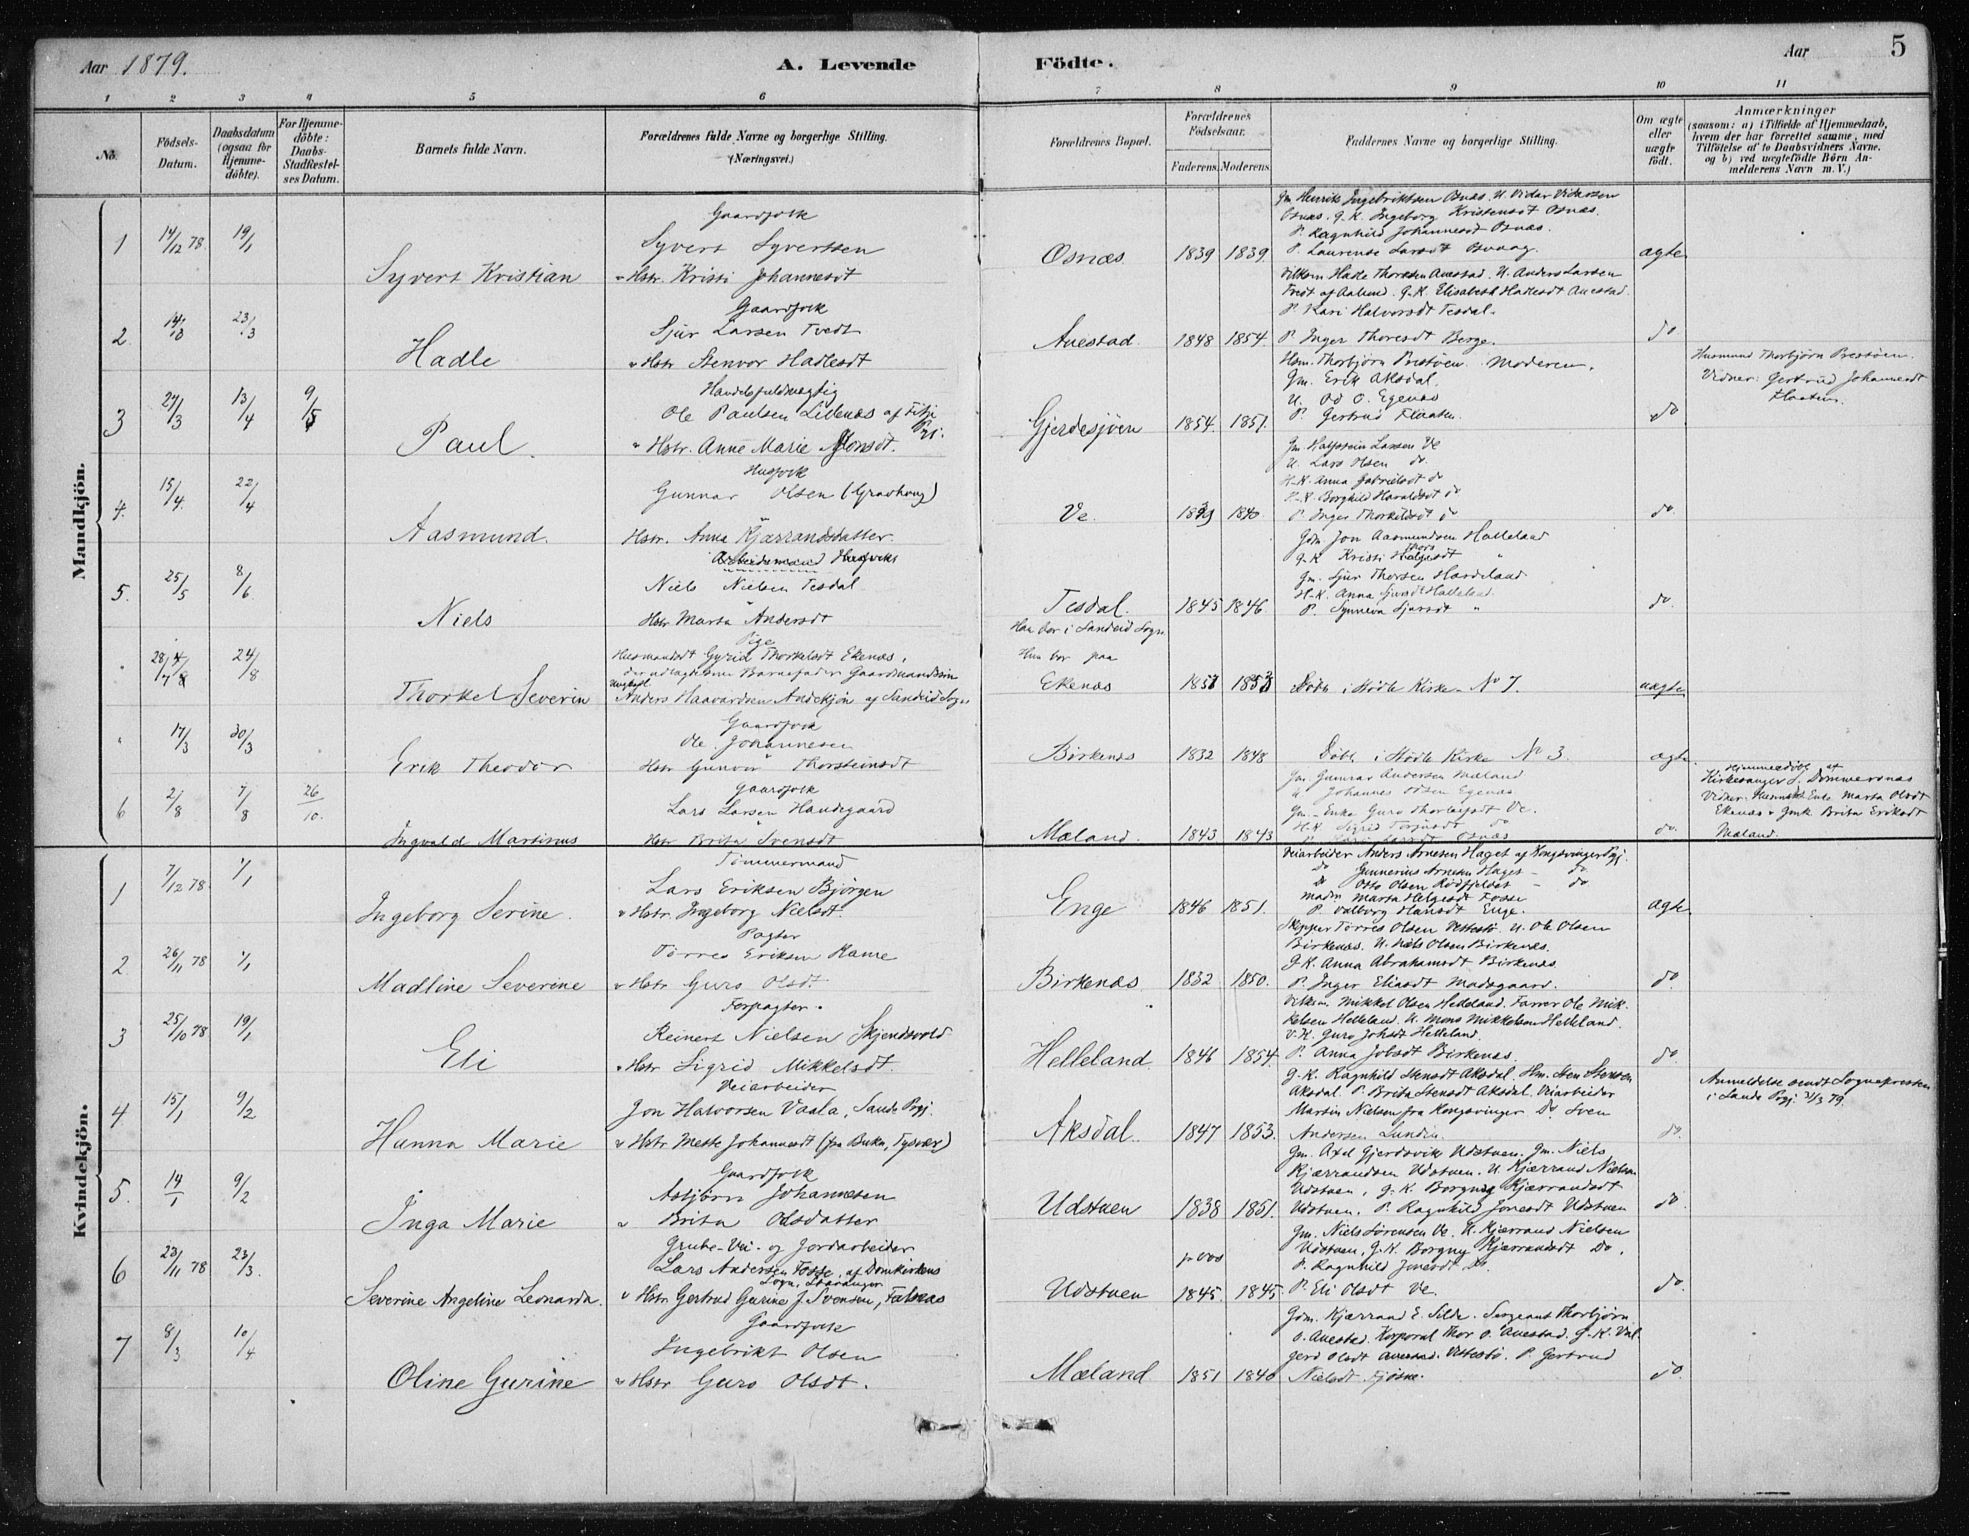 Aar 1879.
A. Levende Födte.
Aar
5
1 2 3 4 5 6 7 8 9 10 11
No.
Födsels-Datum.
Daabsdatum (ogsaa for Hjemme-döbte).
For Hjemme-döbte: Daabs-Stadfæstel-ses Datum.
Barnets fulde Navn.
Forældrenes fulde Navne og borgerlige Stilling. (Næringsvei.)
Forældrenes Bopæl.
Forældrenes Födselsaar.
Faderens. Moderens.
Faddernes Navne og borgerlige Stilling.
Om ægte eller uægte födt.
Anmærkninger
(saasom: a) i Tilfælde af Hjemmedaab, hvem der har forrettet samme, med Tilföielse af to Daabsvidners Navne. og b) ved uægtefödte Börn Anmelderens Navn m. V.)
Mandkjön.
1 14/12 78 19/1 Syvert Kristian
Gaardfolk
Syvert Syvertsen
Hstr. Kristi Johannesdt
Osnæs 1839 1839
Gm Henrik Ingebriktsen Osnæs. U. Vidar Vidarsen
Osnæs. G. K. Ingeborg Kristensdt Osnæs.
P. Ragnhild Johannesdt Osnæs.
P. Laurense Larsdt
ægte
2. 23/3 Hadle
Gaardfolk
Sjur Larsen Tvedt
Hstr Stenvor Hadlesdt
Auestad 1848 1854.
Hadle Thoresen Auestad. U. Anders Larsen
Tvedt af Aalund. G. K. Elisabeth Hadlesdt Auestad.
P. Kari Halvorsdt Tesdal.
P. Inger Thoresdt Berge.
do
3 27/3 13/4 9/5 Paul.
Handelsfuldmægtig
Ole Paulsen Lillenæs af Fitje
Prgj.
Hstr. Anne Marie Monsdt.
Gjerdesjöen 1854. 1851.
Hsm. Thorbjörn Prestöen. Moderen.
Gm. Erik Aksdal.
U. Od O. Egenæs
P. Gertrud Flaaten.
do
Husmand Thorbjörn Prestöen.
Vidner: Gertrud Johannesdt
Flaaten.
4. 15/4. 22/4 Aasmund.
Husfolk
Gunnar Olsen (Gravhaug)
Hstr. Anna Kjærrandsdatter
Ve. 1840
Gm Halfstein Larsen Ve
U. Lars Olsen do.
H-K. Anna Gabrielsdt do
H-K. Borghild Haraldsdt do
P. Inger Thorkildsdt do
do.
5. 25/5 8/6. Niels
Arbeidsmand
Niels Nielsen Tesdal
Hstr Marta Andersdt
Tesdal. 1845 1846.
Gdm Jon Aasmundsen Halleland
G. K Kristi
Gm. Sjur Thorsen Hardeland
H-K. Anna Sjursdt Halleland
P. Synneva Sjursdt "
do.
24/8 Thorkel Severin
Pige
Husmandsdt Gyrid Thorkelsdt Ekenæs,
den udlagte Barnefader Gaardmandssön
ungkarl
Anders Haavardsen af Sandeid Sogn
Han bor i Sandeid Sogn
Hun bor paa
Ekenæs
Döbt i Skjold Kirke. No 7.
uægte
17/3 30/3 Erik Theodor
Gaardfolk
Ole Johannesen
Hstr Gunvor Thorsteinsdt
Birkenæs 1832 1848
Döbt i Skjold Kirke No 3.
ægte.
6 2/8 7/8 26/10. Ingvald Martinus
Gaardfolk
Lars Larsen Handegaard
Hstr Brita Svensdt
Mæland. 1843 1843
Gm Gunnar Andersen Mæland
U Johannes Olsen Egenæs
Gm.-Enke Guro Thorleifsdt Ve.
H-K. Sigrid do
do.
Hjemmedöbt af
Kirkesanger S. Dommersnæs
Vidner: Enke Marta Olsdt
Ekenæs & Gmk. Brita Eriksdt
Mæland.
Kvindekjön.
1 7/12 78 1/1 Ingeborg Serine.
Tömmermand
Lars Eriksen Björgen
Hstr. Ingeborg Nielsdt.
Enge 1846 1851.
Veiarbeider Anders Arnesen Haget af Kongsvinger Prgj.
do Gunnerius Arnesen Haget - do
do Otto Olsen Rödfjeldet - do
Madm Marta Helgesdt Fosse
P. Valborg Hansdt Enge.
ægte
2 26/11 78 1/1 Madline Severine
Pagter
Törres Eriksen Rame
Hstr Guro Olsdt
Birkenæs 1832 1850.
Skipper Törres Olsen U. Ole Olsen
Birkenæs. U. Niels Olsen Birkenæs.
G. K. Anna Abrahamsdt Birkenæs
P. Inger Eliasdt Madsgaard.
do
3 25/10 78 19/1 Eli
Forpagter.
Reinert Nielsen Skjendsvold
Hstr Sigrid Mikkelsdt.
Helleland 1846 1854.
Mikkel Olsen Helleland. Farver Ole Mik-
kelsen Helleland. U. Mons Mikkelsen Helleland.
V. K. Guro Johsdt Helleland.
P. Anna Jobsdt Birkenæs.
do.
4 15/1 9/2 Hanna Marie
Veiarbeider
Jon Halvorsen Vaala, Sande Prgj.
Hstr. Mette Johannesdt (fra Bukn, Tysvær)
Aksdal. 1847 1853.
G. K. Ragnhild Stensdt Aksdal. Hm. Sten Stensen
Aksdal. P. Brita Stensdt Aksdal. Veiarbeider
Martin Nielsen fra Kongsvinger Do Sven
Andersen Lundin.
do.
Anmeldelse sendt Sognepresten
i Sande Prgj. 31/3 79.
5. 14/1 9/2 Inga Marie
Gaardfolk
Astjörn Johannesen
Brita Olsdatter
Udstuen 1838 1851.
Gm. Axel Gjerdsvik Udstuen. Gm. Niels
Kjærrandsen Udstuen. U. Kjærrand Nielsen
Udstuen, G. K. Borgny Kjærrandsdt
Udstuen. P. Ragnhild Jonesdt Udstuen
do.
6 23/11 78 23/3. Severine Angeline Leonarda.
Grube- Vei- og Jordarbeider
Lars Andersen Fosse, af Domkirkens
Sogn, Stavanger
Hstr Gertrud Gurine J. Svensen, Falnæs
Udstuen
p. 000
1845. 1845
Gm. Niels Sörensen Ve. U. Kjærrand Nielsen
Udstuen. G. K. Borgny Kjærrandsdt Do.
P. Ragnhild Jonesdt Do.
P. Eli Olsdt Ve.
do.
7 8/3 10/4 Oline Gurine
Gaardfolk
Ingebrikt Olsen
Hstr Guro Olsdt.
Mæland 1851 1840
Gdm. Kjærrand E. Silde. Sergeant Thorbjörn
O. Auestad. Korporal Thor O. Auestad. G. K. Val
gerd Olsdt P. Gertrud
Nielsdt
do.